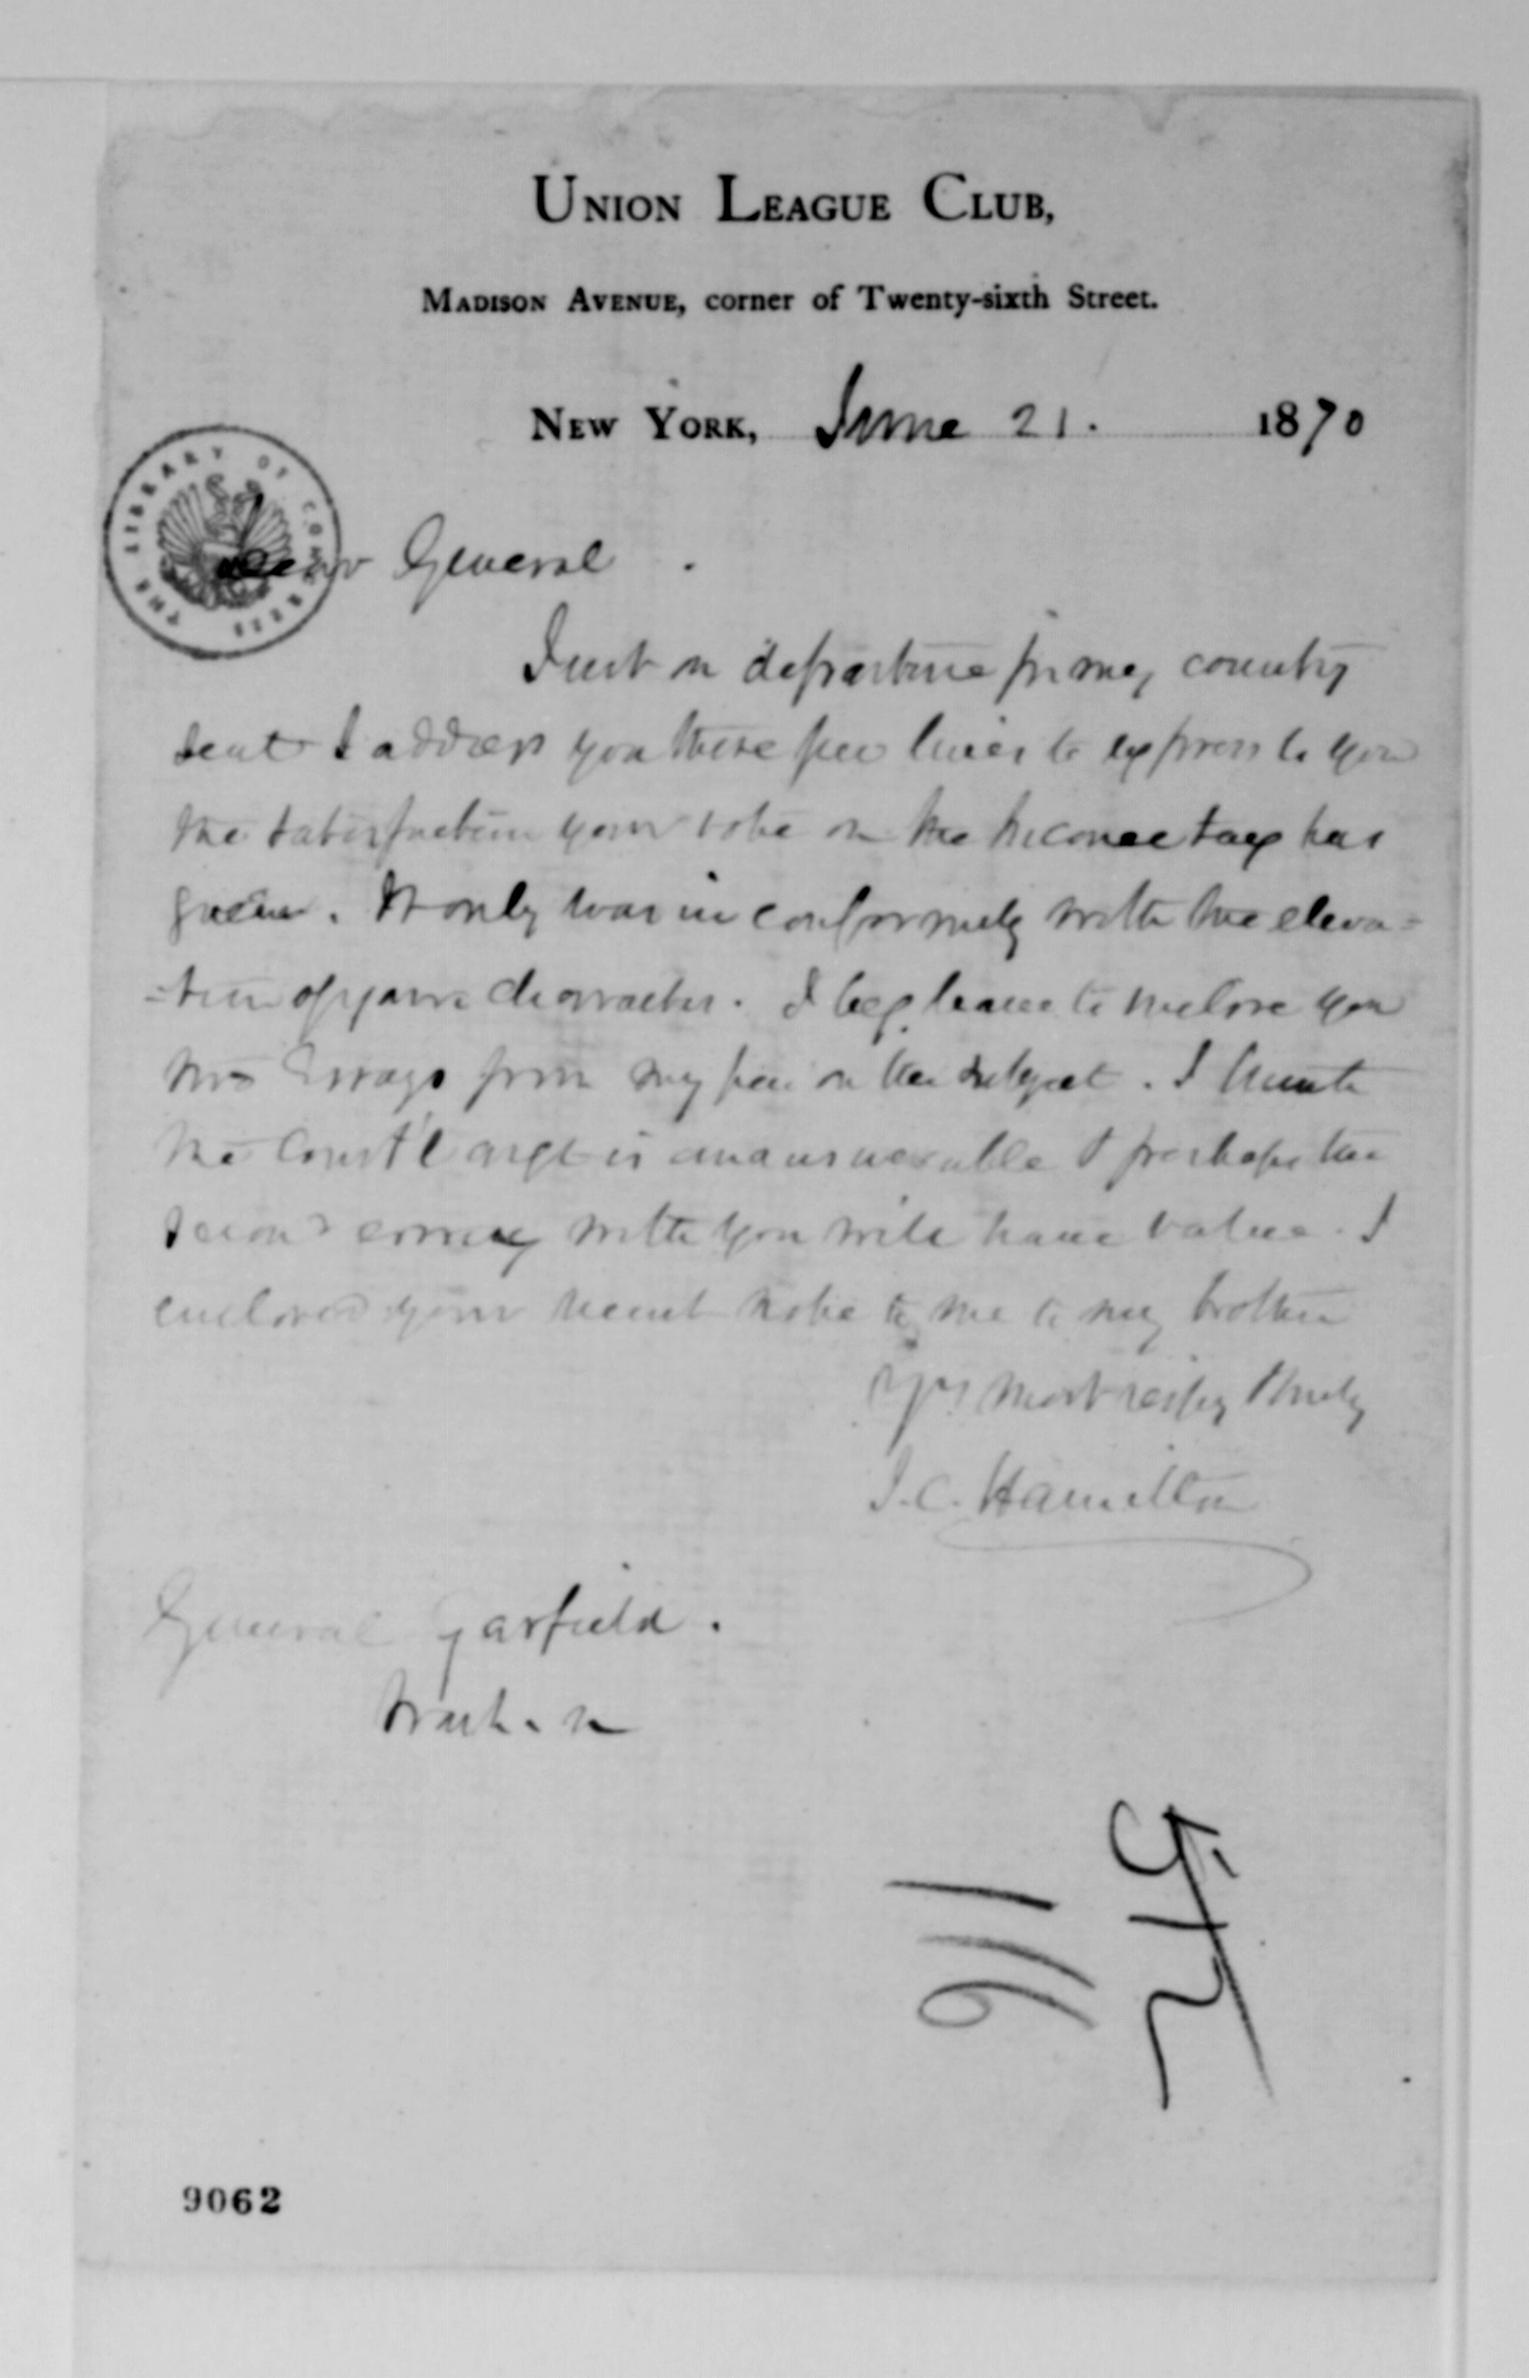 UNION LEAGUE CLUB,
MADISON AVENUE, corner of Twenty-sixth Street.
NEW YORK, June 21. 1870
THE LIBRARY OF CONGRESS
Dear General.
Just on departure for my country
seat I address you these few lines to express to you
the satisfaction your vote on the Income tax has
given. It only was in conformity with the eleva=
=tion of your character. I beg leave to inclose you
two Essays from my pen on the subject. I think
the Const'l argt is unanswerable & perhaps the
second with you will have value. I
enclosed your recent note to me to my brother
Yrs most respy & truly
J. C. Hamilton
General Garfield.
Wash.n
512
116
9062